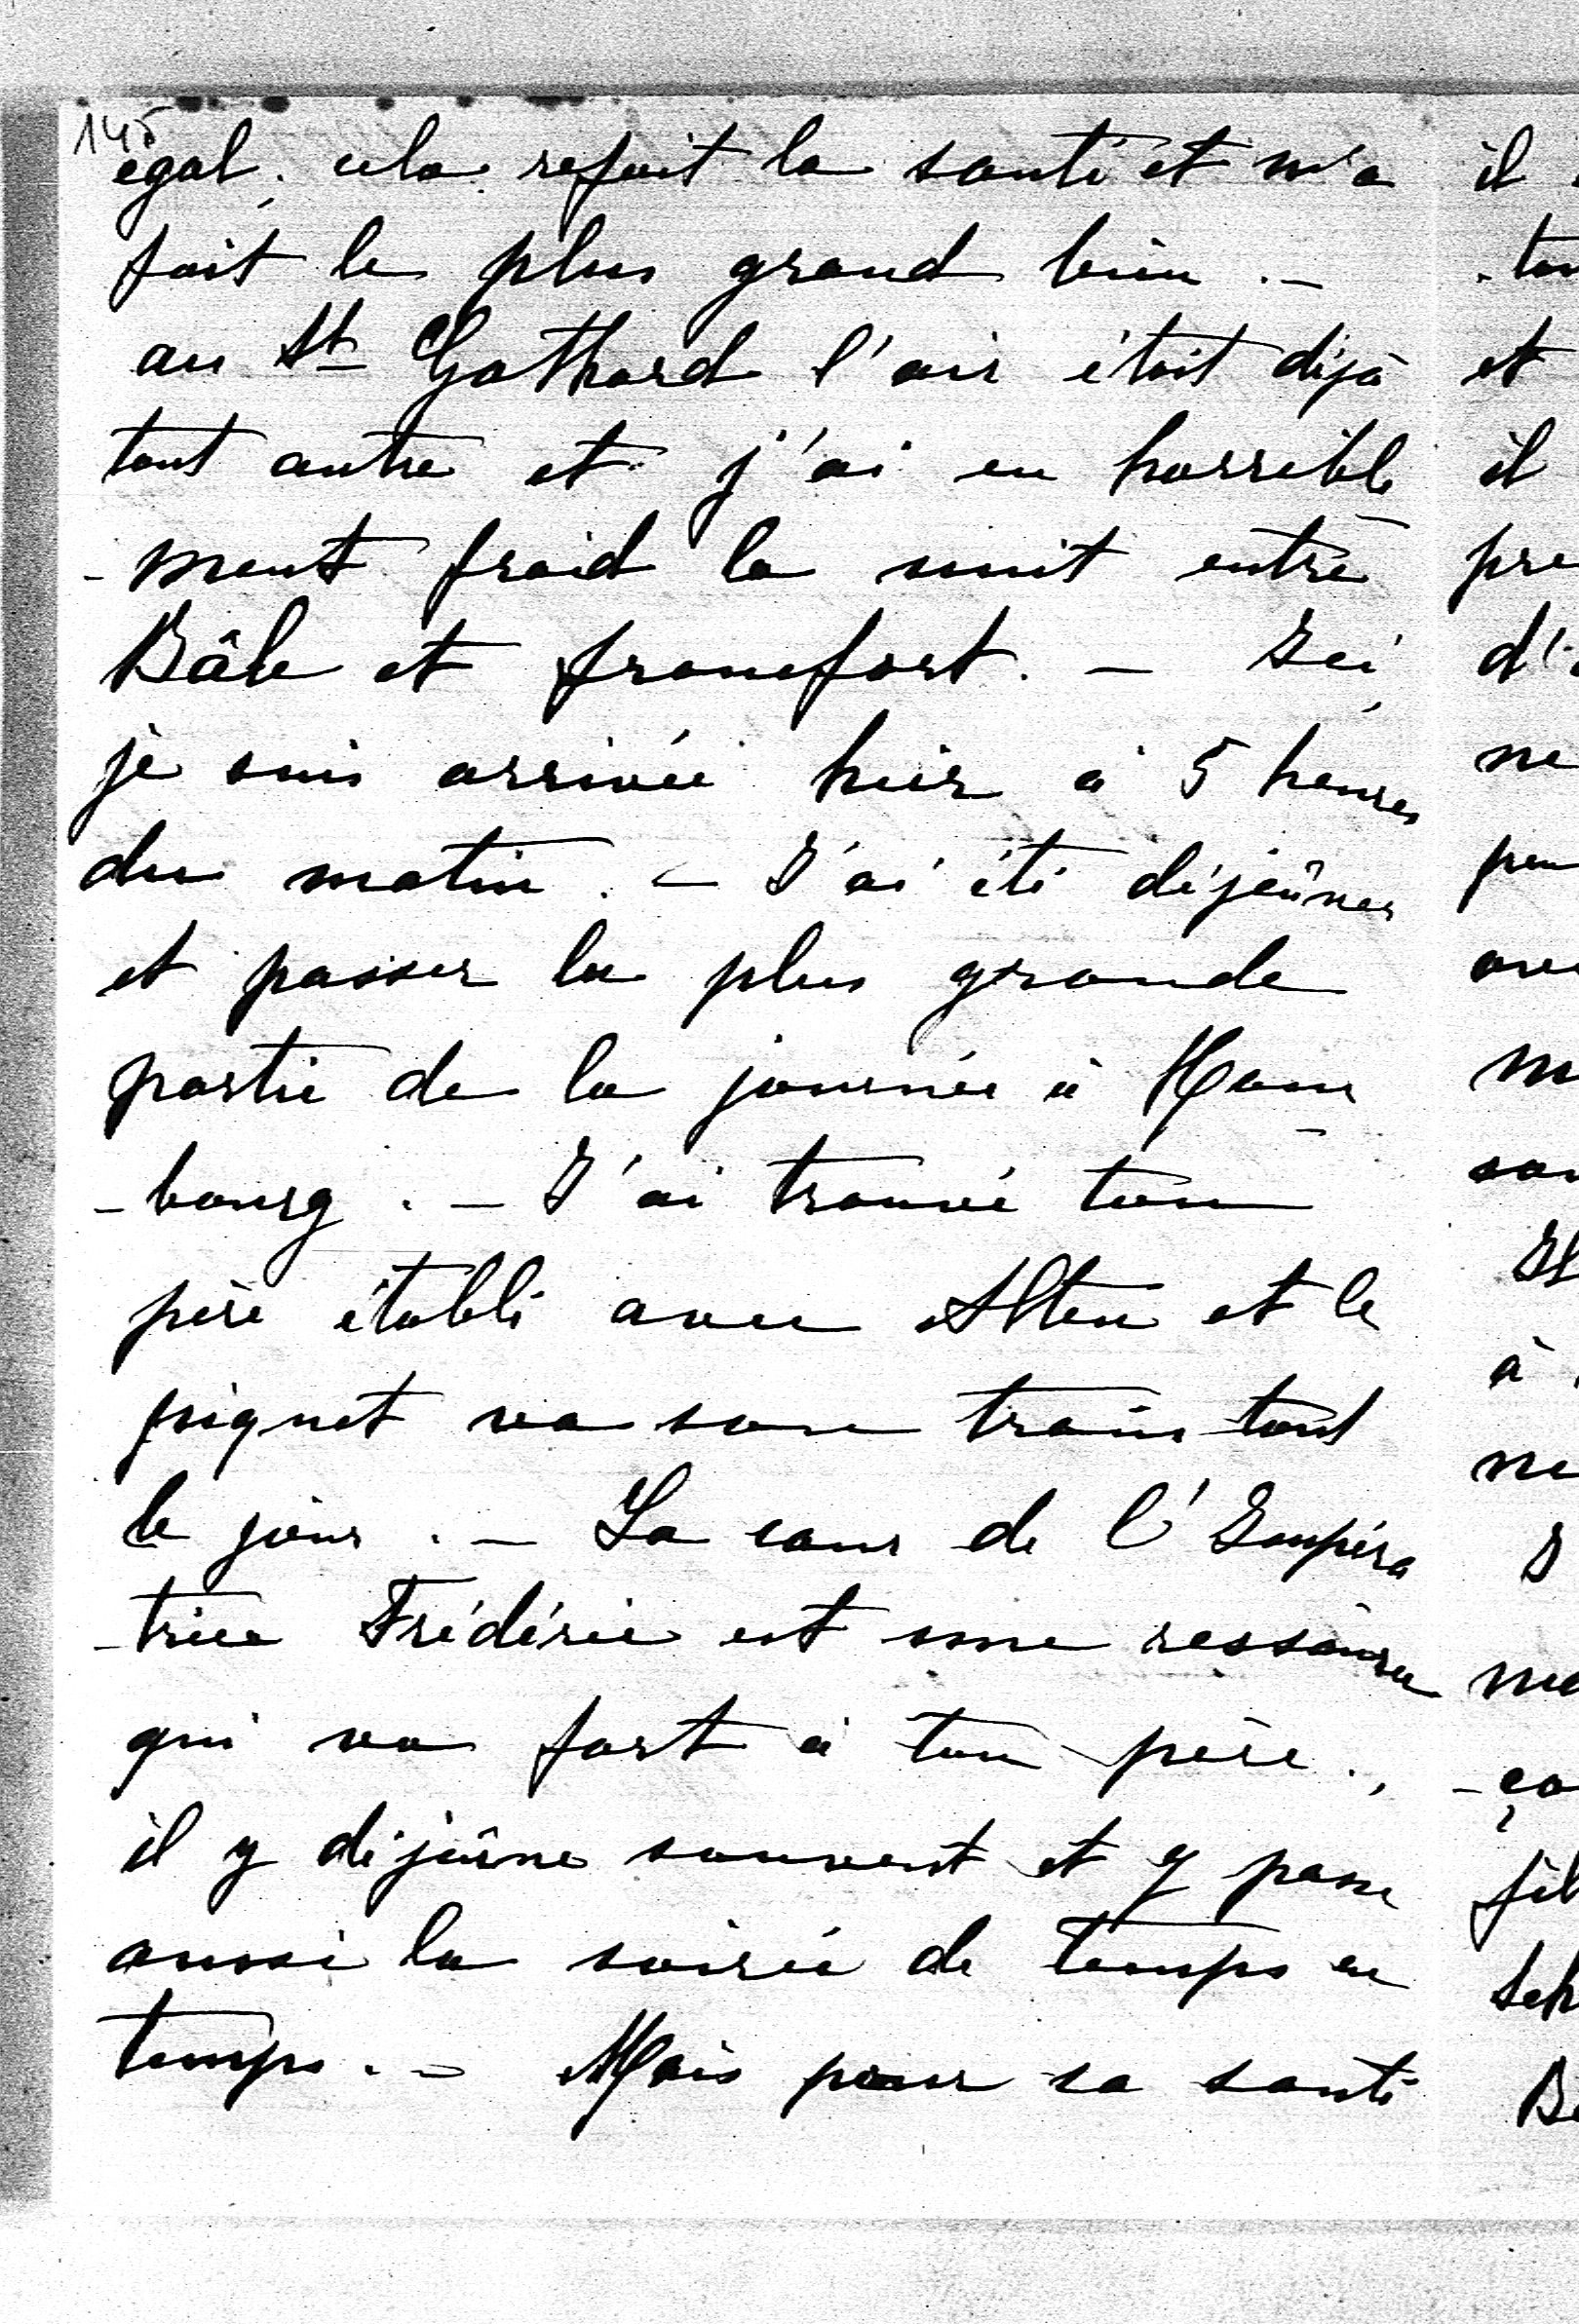 145
égal, cela refait la santé et m'a
fait le plus grand bien. –
au St Gothard l'air était déjà
tout autre et j'ai eu horrible
-ment froid la nuit entre
Bâle et francfort. – Ici
je suis arrivée hier à 5 heures
du matin. – J'ai été déjeûner
et passer la plus grande
partie de la journée à Hom
-bourg. – J'ai trouvé ton
père établi avec Alten et le
piquet va son train tout
le jour. – La cour de l'Impéra
-trice Frédéric est une ressource
qui va fort à ton père.,
il y déjeûne souvent et y passe
aussi la soirée de temps en
temps. – Mais pour sa santé
il
et
il
pre
d'
ne
à
ne